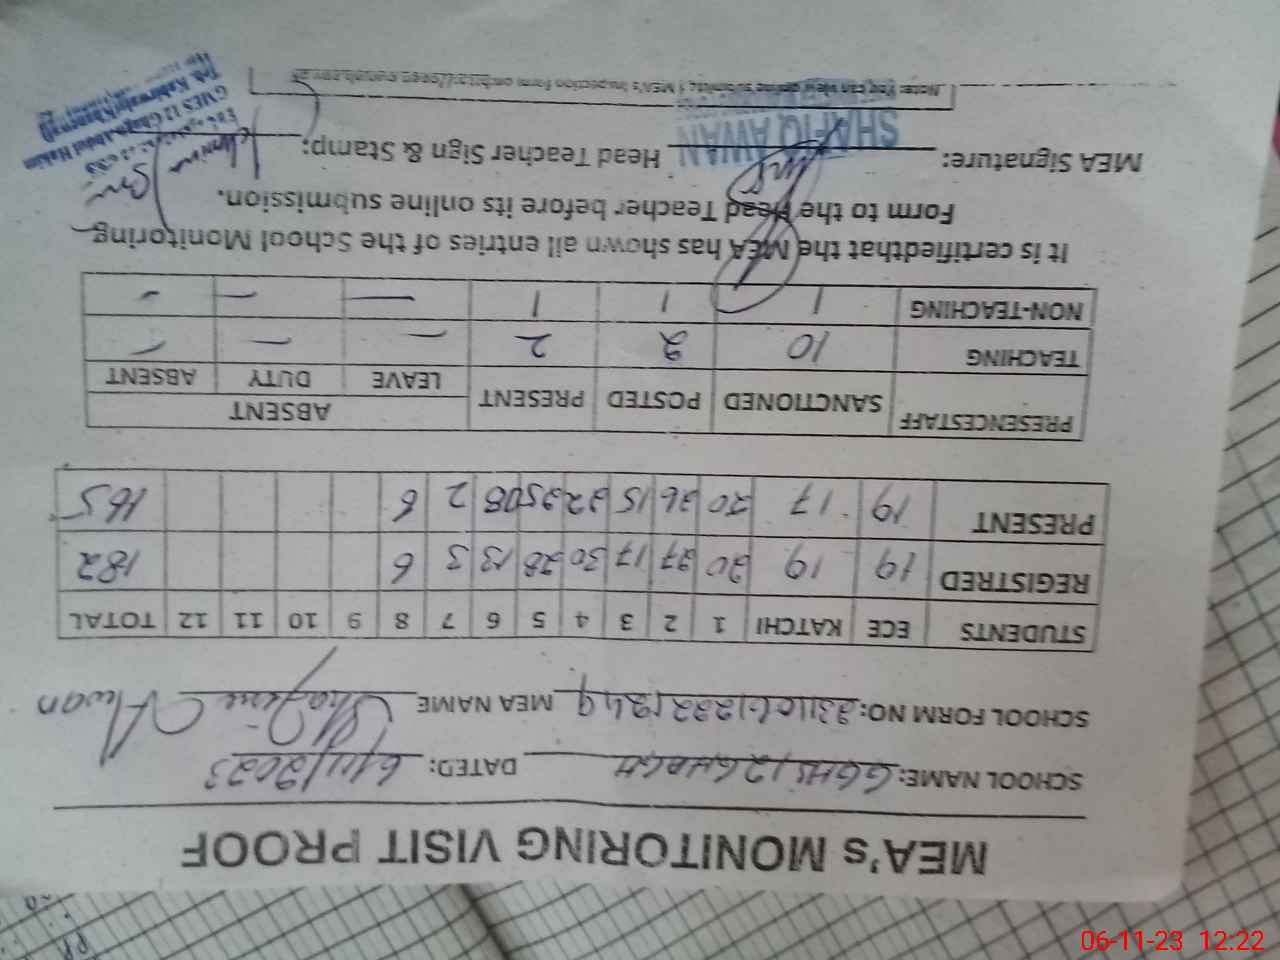 MEA's MONITORING VISIT PROOF
SCHOOL NAME: GGHS 12 GHAGH DATED: 6/11/2023
SCHOOL FORM NO: 2311061222 1249 MEA NAME Awan
STUDENTS ECE KATCHI 1 2 3 4 5 6 7 8 9 10 11 12 TOTAL
REGISTRED 19 19 20 27 17 30 28 13 3 6 182
PRESENT 19 17 20 26 15 22 25 08 2 6 165
PRESENCESTAFF SANCTIONED POSTED PRESENT ABSENT
LEAVE DUTY ABSENT
TEACHING 10 2 2 — — —
NON-TEACHING 1 1 1 — — -
It is certifiedthat the MEA has shown all entries of the School Monitoring
Form to the Head Teacher before its online submission.
MEA Signature: Head Teacher Sign & Stamp:
SHAFIQ AWAN
Note: You can view online submitted MEA's inspection form on
06-11-23 12:22